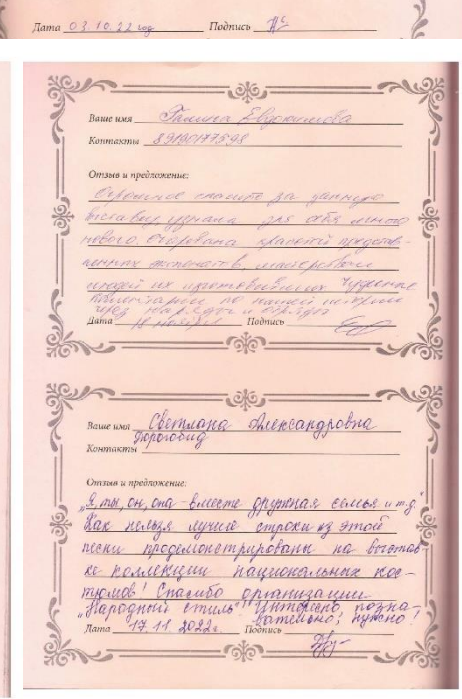 Дата 03.10.22 год Подпись
Ваше имя Галина Евдокимова
Контакты
Отзыв и предложение:
Огромное спасибо за данную
выставку, узнала для себя много
нового. Очарована красотой представ-
ленных экспонатов, мастерством
людей их изготовивших. Чудесные
комментарии по нашей истории
через наряды и обряды
Дата 18 ноября Подпись
Ваше имя Светлана Александровна
Контакты
Отзыв и предложение:
„Я, ты, он, она - вместе дружная семья и т.д."
Как нельзя лучше строки из этой
песни продемонстрированы на выстав-
ке коллекции национальных кос-
тюмов! Спасибо организации
„Народный стиль"! Интересно, позна-
вательно, нужно!
Дата 17.11.2022г. Подпись